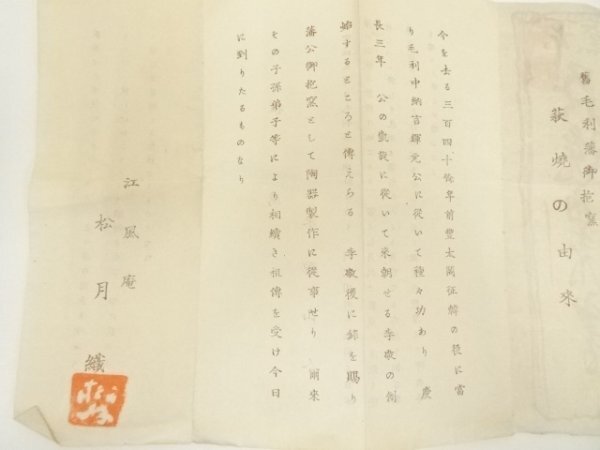 舊毛利藩御抱窯
萩燒の由來
今を去る三百四十餘年前豐太閤征韓の役に當
り毛利中納言輝元公に從いて種々功あり 慶
長三年 公の凱旋に從いて來朝せる李敬の創
始するところと傳えらる 李敬後に祿を賜り
藩公御抱窯として陶器製作に從事せり 爾來
その子孫弟子等により相續き祖傳を受け今日
に到りたるものなり
江風庵
松月
織